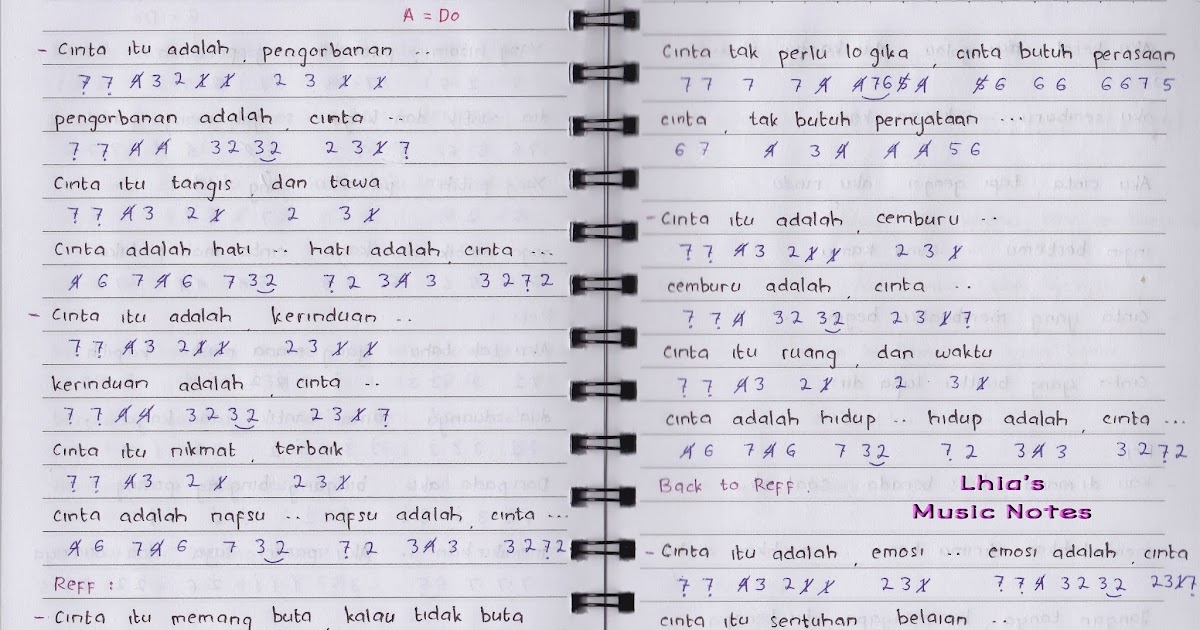 A = Do
- Cinta itu adalah, pengorbanan ...
7̣ 7̣ 4̸ 3 2 1̸ 1̸ 2 3 1̸ 1̸
pengorbanan adalah, cinta ..
7̣ 7̣ 4̸ 4̸ 3 2 3 2 2 3 1̸ 7̣
Cinta itu tangis, dan tawa
7̣ 7̣ 4̸ 3 2 1̸ 2 3 1̸
Cinta adalah hati ... hati adalah, cinta ...
4̸ 6 7 4̸ 6 7 3 2 7̣ 2 3 4̸ 3 3 2 7̣ 2
- Cinta itu adalah, kerinduan ..
7̣ 7̣ 4̸ 3 2 1̸ 1̸ 2 3 1̸ 1̸
kerinduan adalah, cinta ..
7̣ 7̣ 4̸ 4̸ 3 2 3 2 2 3 1̸ 7̣
Cinta itu nikmat, terbaik
7̣ 7̣ 4̸ 3 2 1̸ 2 3 1̸
Cinta adalah nafsu .. nafsu adalah, cinta ...
4̸ 6 7 4̸ 6 7 3 2 7̣ 2 3 4̸ 3 3 2 7̣ 2
Reff :
- Cinta itu memang buta, kalau tidak buta
Cinta tak perlu logika, cinta butuh perasaan
7 7 7 7 4̸ 4̸ 7 6 5̸ 4̸ 5̸ 6 6 6 6 6 7 5
cinta, tak butuh pernyataan ...
6 7 4̸ 3 4̸ 4̸ 4̸ 5 6
- Cinta itu adalah, cemburu ..
7̣ 7̣ 4̸ 3 2 1̸ 1̸ 2 3 1̸
cemburu adalah, cinta ..
7̣ 7̣ 4̸ 3 2 3 2 2 3 1̸ 7̣
Cinta itu ruang, dan waktu
7̣ 7̣ 4̸ 3 2 1̸ 2 3 1̸
cinta adalah hidup .. hidup adalah, cinta ...
4̸ 6 7 4̸ 6 7 3 2 7̣ 2 3 4̸ 3 3 2 7̣ 2
Back to Reff.
Lhia's
Music Notes
- Cinta itu adalah, emosi .. emosi adalah, cinta
7̣ 7̣ 4̸ 3 2 1̸ 1̸ 2 3 1̸ 7̣ 7̣ 4̸ 3 2 3 2 2 3 1̸ 7̣
cinta itu sentuhan, belaian ..